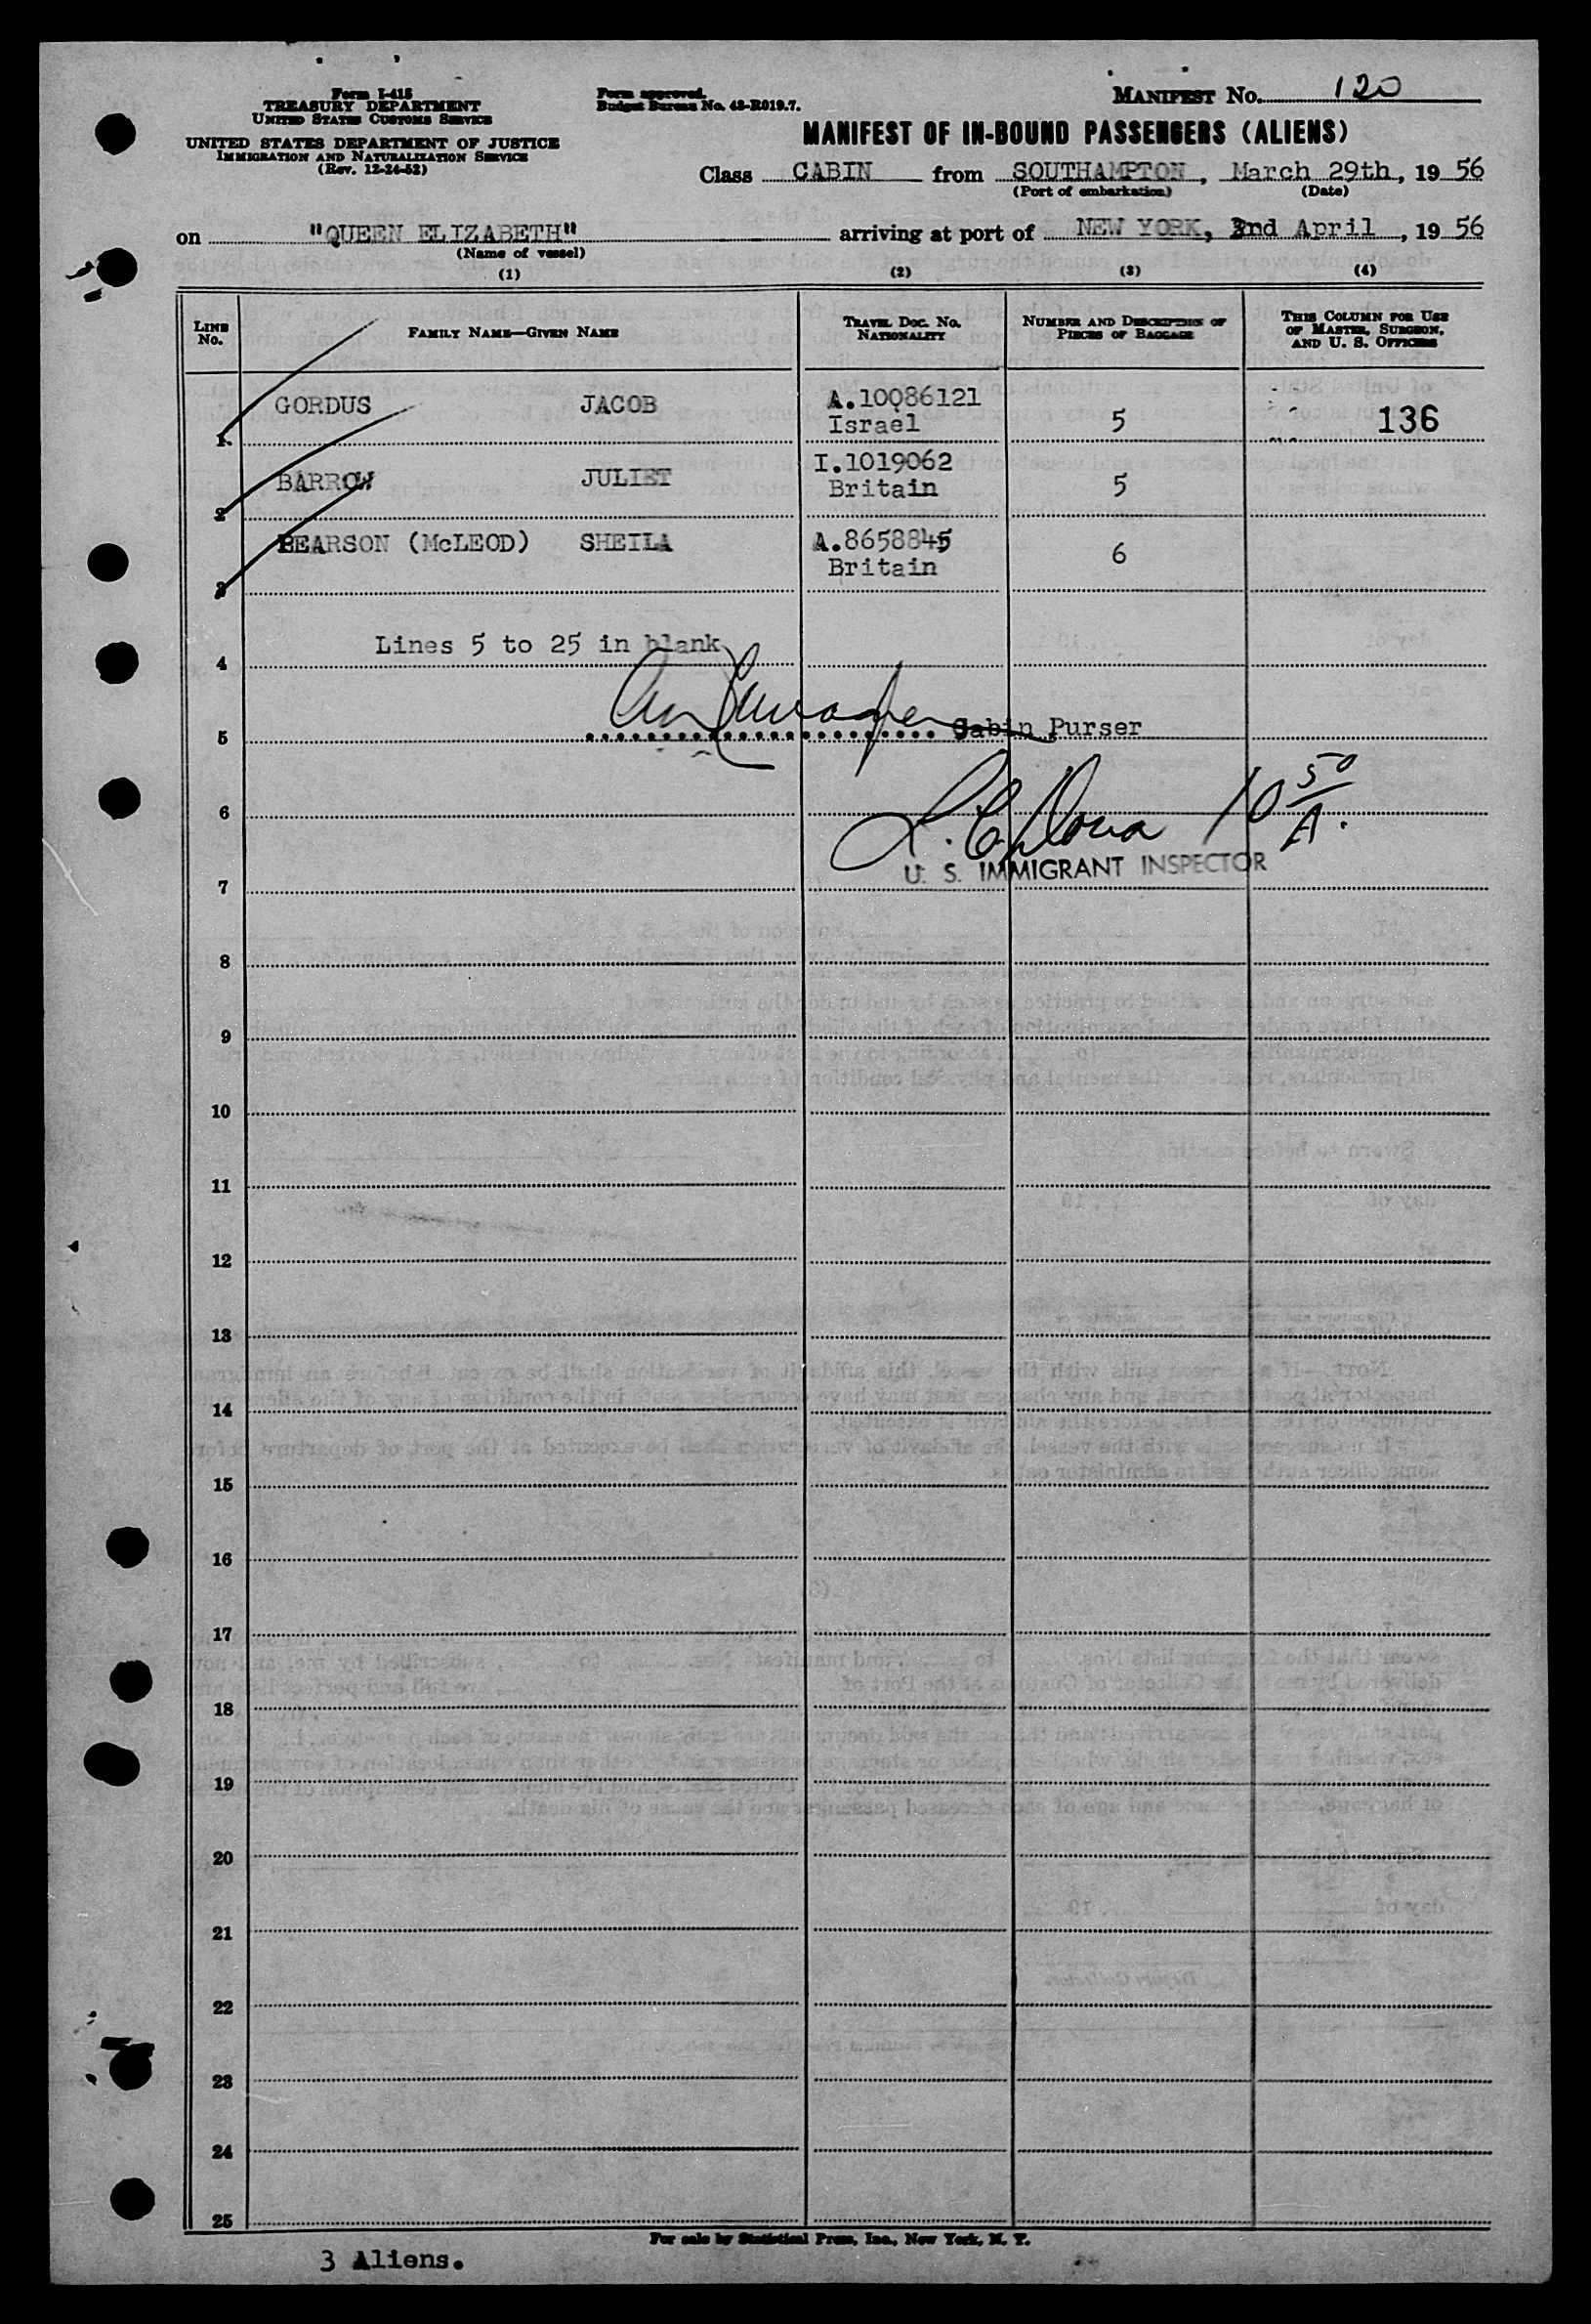 Form I-415
TREASURY DEPARTMENT
UNITED STATES CUSTOMS SERVICE
UNITED STATES DEPARTMENT OF JUSTICE
IMMIGRATION AND NATURALIZATION SERVICE
(Rev. 12-24-52)
Form approved.
Budget Bureau No. 43-R019.7.
MANIFEST No. 120
MANIFEST OF IN-BOUND PASSENGERS (ALIENS)
Class CABIN from SOUTHAMPTON, March 29th, 19 56
(Port of embarkation) (Date)
on "QUEEN ELIZABETH" arriving at port of NEW YORK, 2nd April, 19 56
(Name of vessel)
(1) (2) (3) (4)
LINE No. FAMILY NAME—GIVEN NAME TRAVEL DOC. No. NATIONALITY NUMBER AND DESCRIPTION OF PIECES OF BAGGAGE THIS COLUMN FOR USE OF MASTER, SURGEON, AND U. S. OFFICERS
1 GORDUS JACOB A.10086121 Israel 5 136
2 BARROW JULIET I.1019062 Britain 5
3 PEARSON (McLEOD) SHEILA A.8658845 Britain 6
4 Lines 5 to 25 in blank
5 Cabin Purser
6 10 50 A.
7 U. S. IMMIGRANT INSPECTOR
8
9
10
11
12
13
14
15
16
17
18
19
20
21
22
23
24
25
For sale by Statistical Press, Inc., New York, N. Y.
3 Aliens.